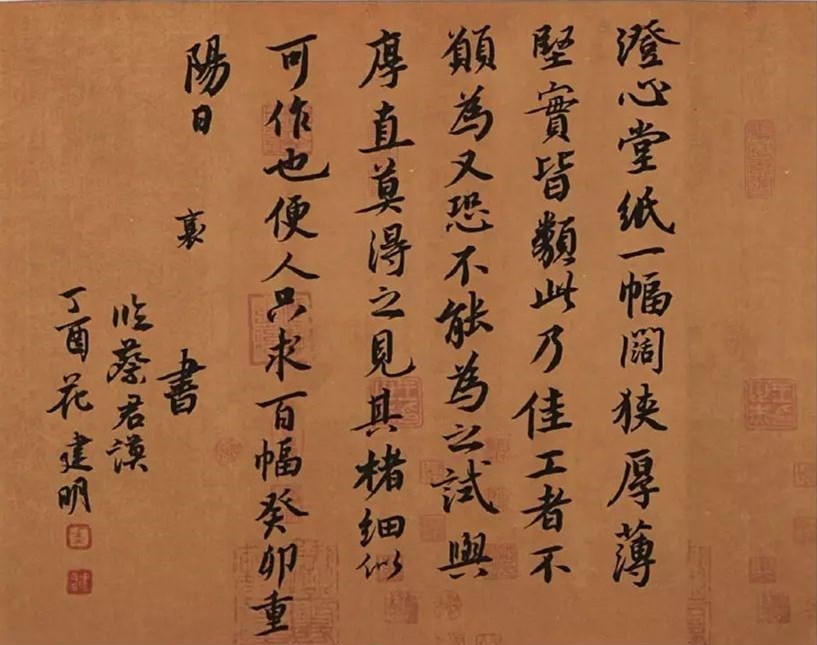 澄心堂紙一幅闊狹厚薄
堅實皆類此乃佳工者不
願為又恐不能為之試與
厚直莫得之見其楮細似
可作也便人只求百幅癸卯重
陽日 襄 書
臨蔡君謨
丁酉花建明